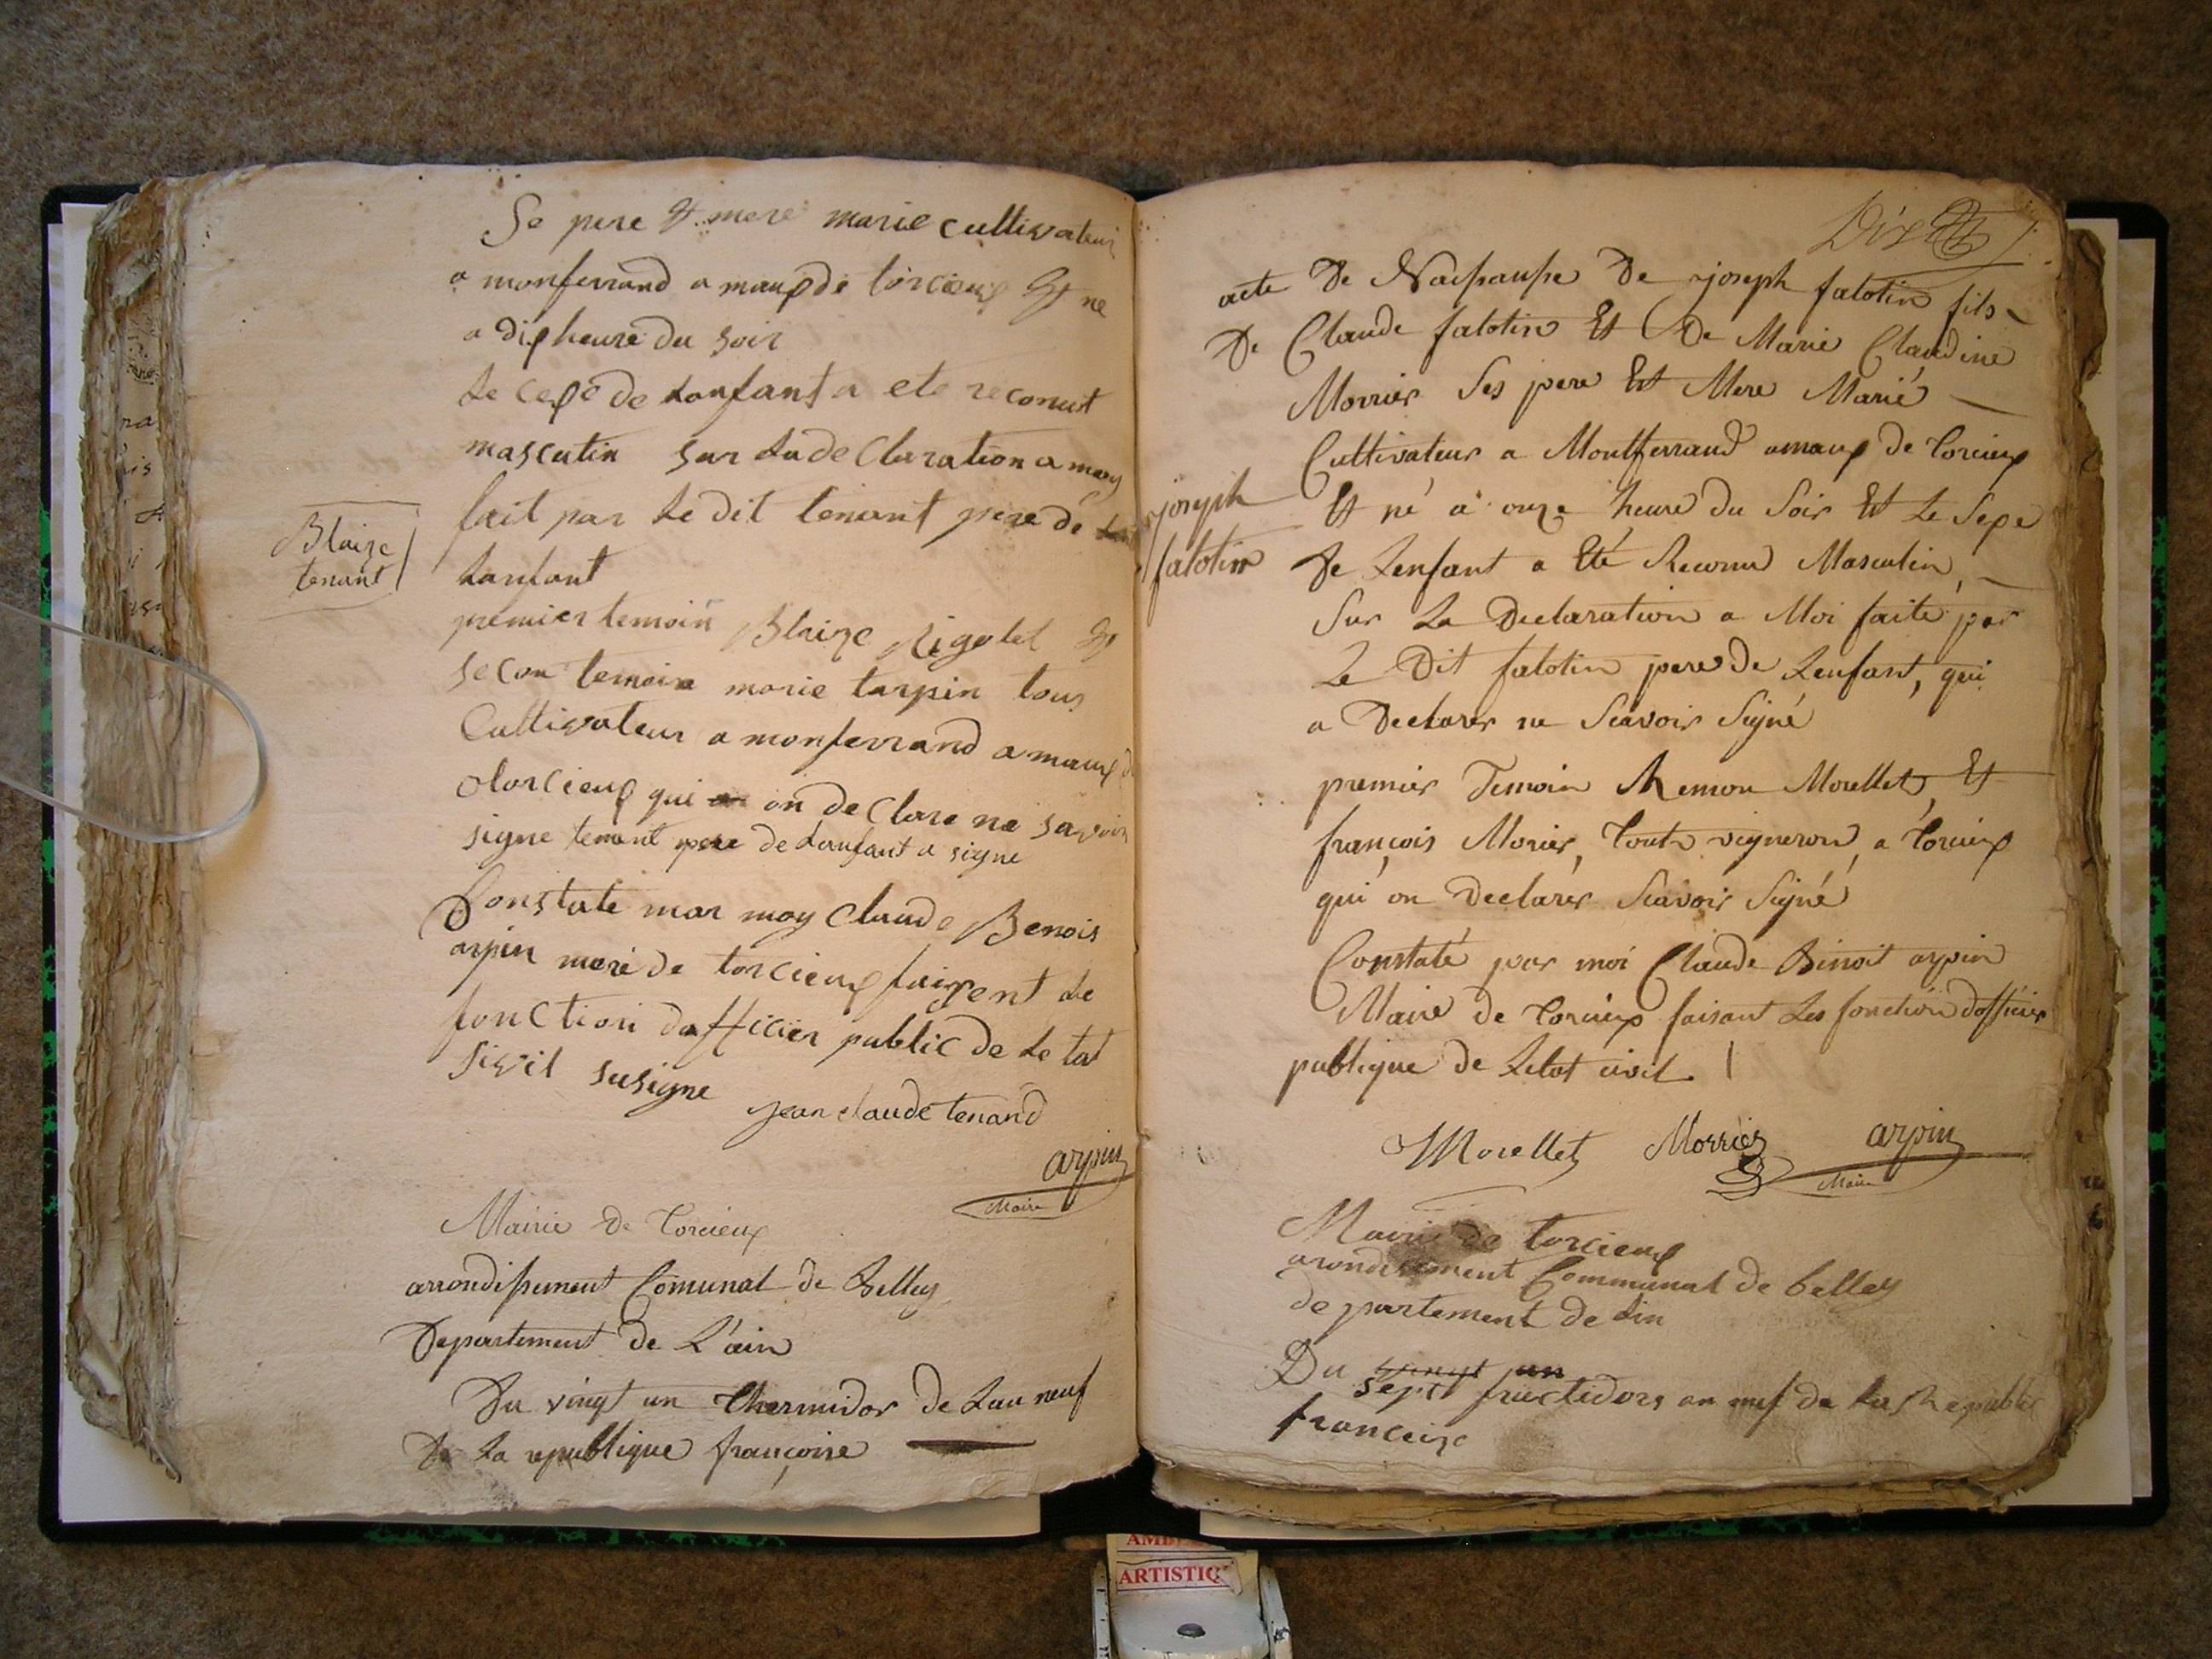 Se pere Et mere marie cultivateur
a monferrand amauxde torcieux Et ne
a dix heure du soir
Le cexe de Lanfant a ete reconut
mascutin sur Ladeclaration a moy
fait par Le dit tenant pere de
Lanfant
Blaize
tenant
premier temoin Blaize Rigolet Et
secon temoin marie tarpin tous
Cultivateur a monferrand amaux de
torcieux qui on declare ne savoir
signe tenant pere de Lanfant a signe
Constate mar moy claude Benois
arpin mere de torcieux faisent Le
fonction dofficier public de Le tat
sivil susigne
jean claude tenand
arpin
Maire
Mairie de Torcieux
arrondissement Comunal de Belley
Departement de L'ain
Du vingt un thermidor de Lan neuf
De La republique françoise
acte De Naissansse De joseph falotin fils
De Claude falotin Et De Marie Claudine
Morrier Ses pere Et Mere Marié
Cultivateur a Montferrand amaux de Torcieux
joseph
falotin
Et né a onze heure du Soir Et Le Sexe
De Lenfant a Eté Reconu Masculin,
Sur La Declaration a Moi faite par
Le Dit falotin pere de Lenfant, qui
a Declarer ne Scavoir Signé
premier Temoin Remon Morellet, Et
françois Morier, Touts vigneron, a Torcieux
qui on Declarer Scavoir Signé
Constaté par moi Claude Binoit arpin
Maire de Torcieux faisant Les fonction dofficier
publique de Letat civil
Morellet Morrier arpin
Maire
Mairie de torcieux
arondisement Communal de belley
departement de Lin
Du vingt un
sept fructidors an nuf de La Republic
francaize
AMB
ARTISTIQ